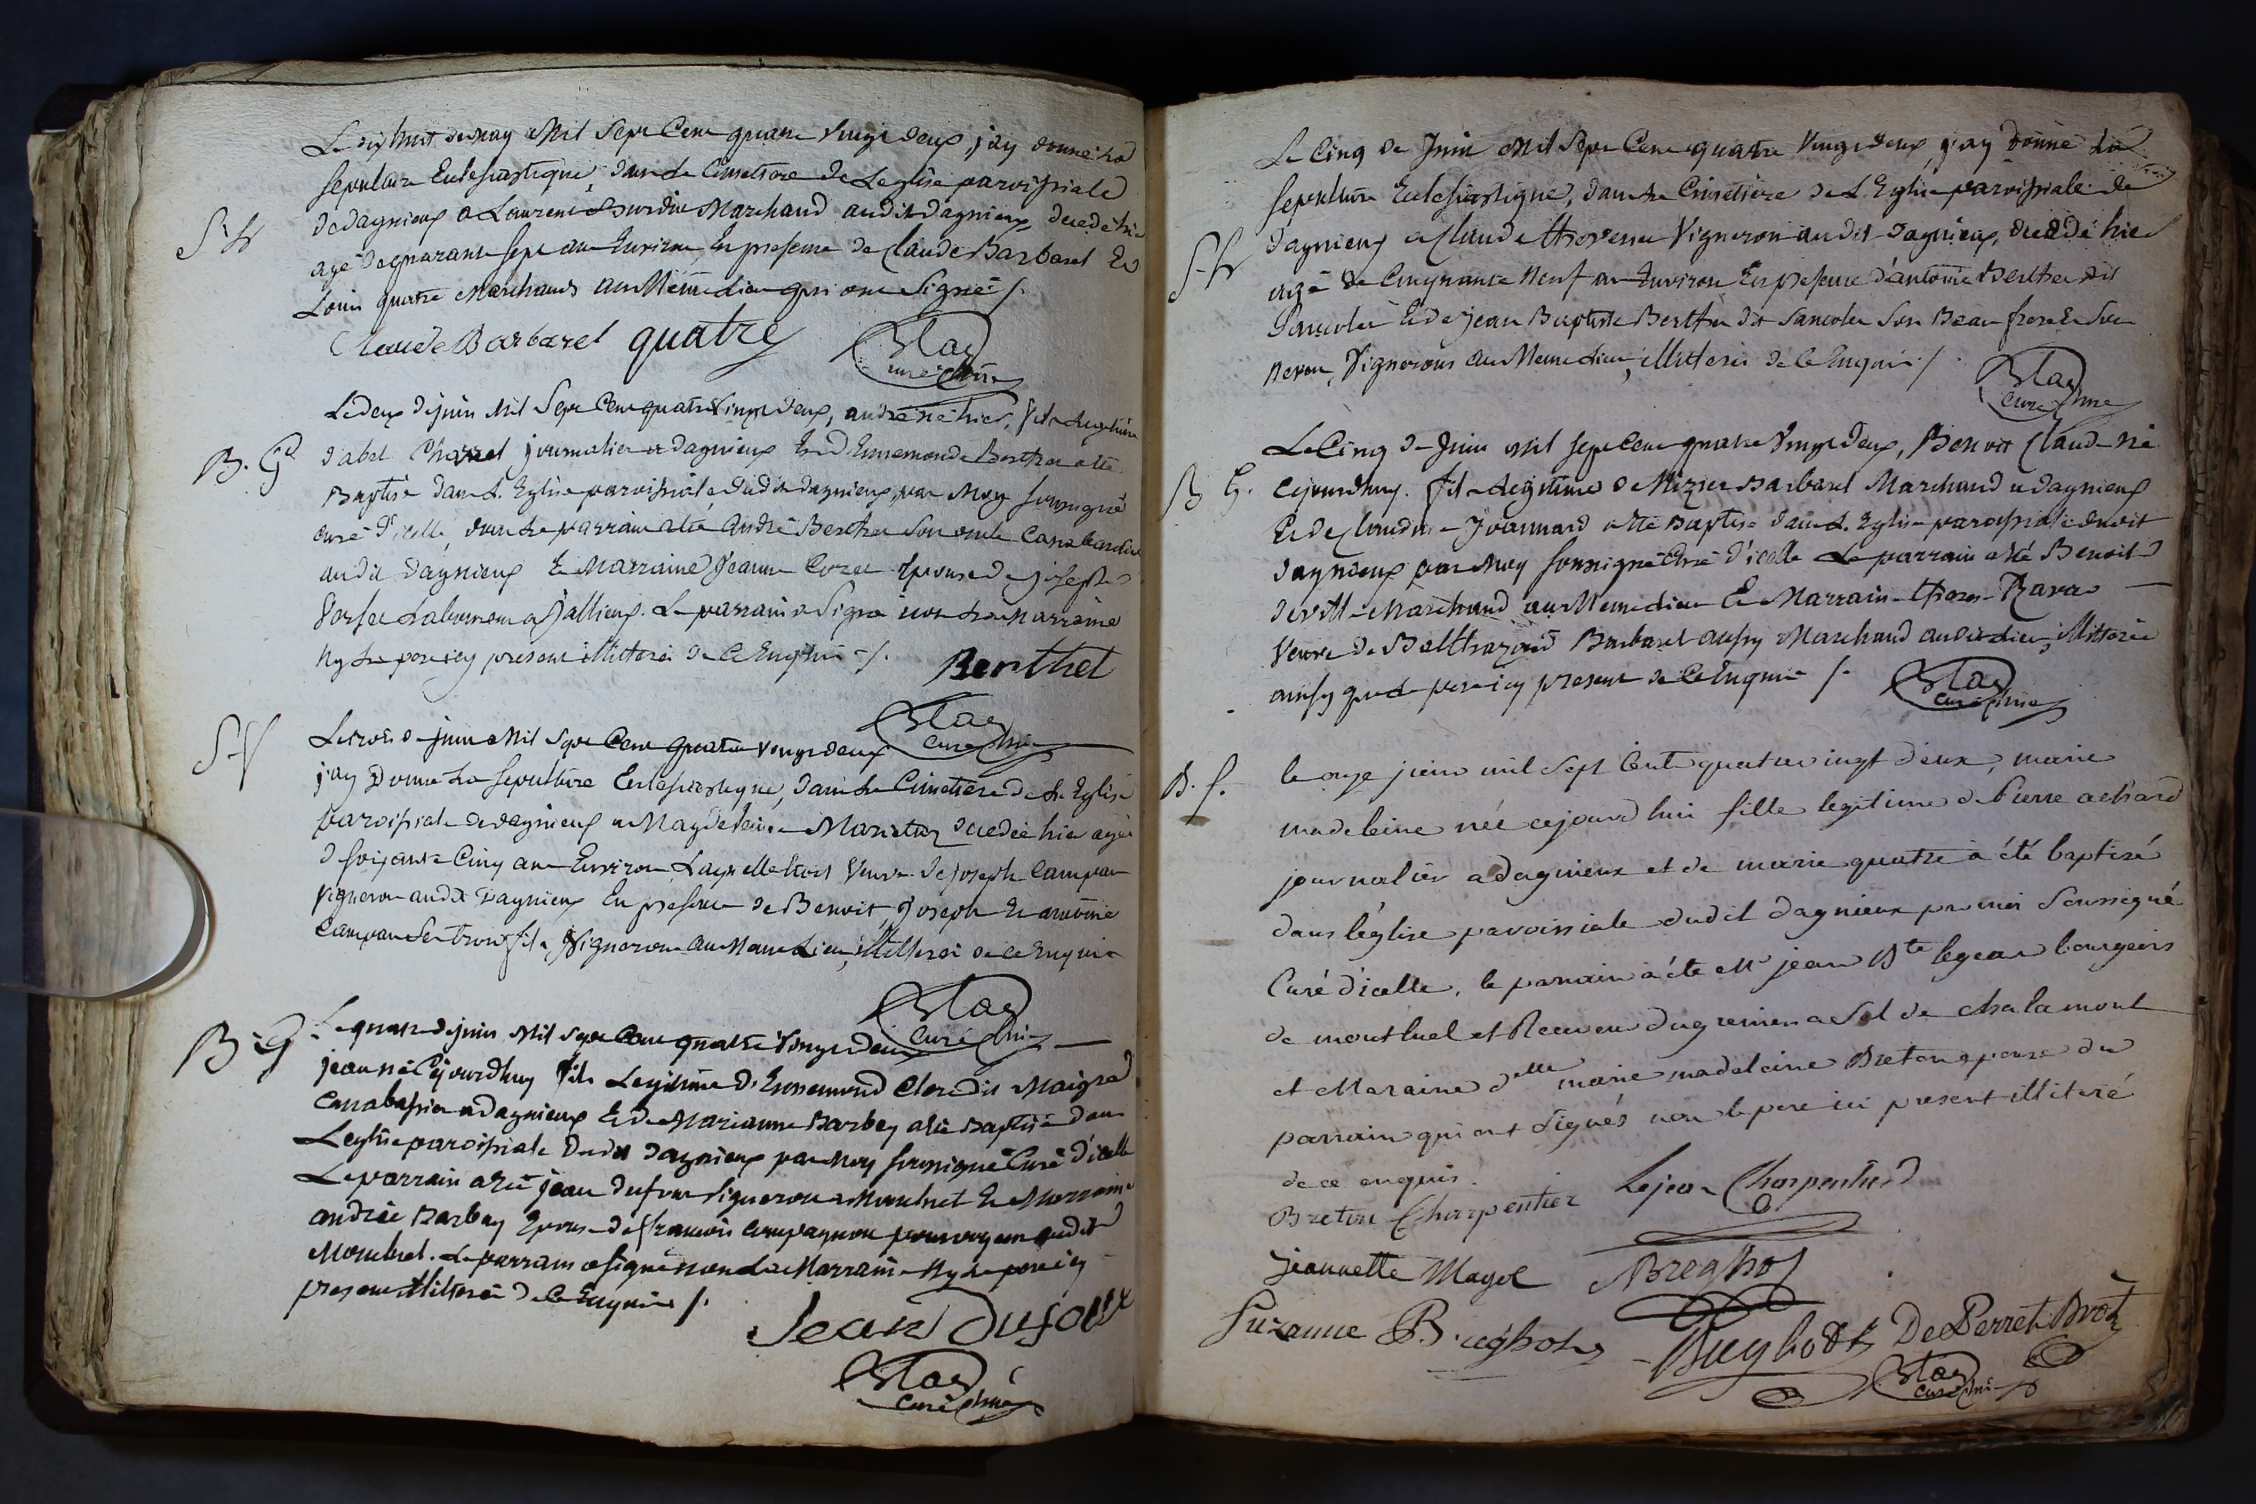 Le dix huit de may Mil Sept Cent quatre Vingt deux, j'ay donné La
sepulture Eclesiastique, dans Le Cimetiere de Leglise paroissiale
S. h
de dagnieux a Laurent Bourdin Marchand audit dagnieux decedé hier
agé de quarante sept ans Environ, En presence de Claude Barbaret Et
Louis quatre Marchands au Même Lieu qui ont Signé /.
Claude Barbaret quatre
Blas
curé
Le deux de juin Mil Sept Cent quatre Vingt deux, andré né hier, fils Legitime
B. G
d'abel journalier a dagnieux Et d'Ennemonde Berthet a été
Baptisé dans L'Eglise paroissiale dudit dagnieux, par Moy soussigné
curé d'icelle, dont Le parrain a été andré Berthet Son oncle
audit dagnieux Et Marraine Jeanne épouse de joseph
Laboureur a jallieux. Le parrain a Signé non La Marraine
Ny Le pere icy present illitterés de Ce Enquis /.
Berthet
Blas
Curé
S. V
Le trois de juin Mil Sept Cent quatre vingt deux
j'ay Donné La sepulture Eclesiastique, dans Le Cimetiere de L'Eglise
paroissiale de dagnieux a Magdeleine decedée hier agée
de soixante Cinq ans Environ Laquelle étoit Veuve de joseph Campan
Vigneron audit Dagnieux En presence de Benoit, joseph Et antoine
Campan Ses trois fils, Vignerons au Meme Lieu, illitterés de ce Enquis
Blas
Curé
B. G.
Le quatre de juin Mil Sept Cent quatre Vingt Deux
jean né Cejourdhuy fils Legitime d'Ennemond Clere dit Maigre
a dagnieux Et de Marianne Barbey a été Baptisé dans
L'eglise paroissiale Dudit Dagnieux par Moy soussigné Curé d'icelle
Le parrain a été jean dufour Vigneron a Montluel Et Marraine
andrée Barbey Epouse de francois Compagnon audit
Montluel. Le parrain a signé non La Marraine Ny Le pere icy
present illitterés de Ce Enquis /.
Jean Dufour
Blas
Curé
Le Cinq de Juin Mil Sept Cent quatre Vingt deux, j'ay Donné La
sepulture Eclesiastique, dans Le Cimetiere de L'Eglise paroissiale de
S. h
dagnieux a Claude thevenet Vigneron audit dagnieux, decedé hier
agé de Cinquante Neuf ans Environ En presence d'antoine Berthet dit
Et de jean Baptiste Berthet dit Son Beau frere Et Son
neveu, Vignerons au Meme Lieu, illitterés de Ce Enquis /.
Blas
Curé
Le Cinq de Juin Mil Sept Cent quatre Vingt deux, Benoit Claude né
B. G.
Cejourdhuy. fils Legitime de Mizier Barbaret Marchand a dagnieux
Et de Claudine Jvannard a été Baptisé dans L'Eglise paroissiale dudit
dagnieux par Moy soussigné Curé d'icelle Le parrain a été Benoit
Marchand au Meme Lieu Et Marraine Ravat
Veuve de Balthazard Barbaret aussy Marchand audit Lieu, illitterée
ainsy que Le pere icy present de Ce Enquis /.
Blas
Curé
B. f.
le onze juin mil sept Cent quatre vingt deux, marie
madeleine née cejourd'hui fille legitime de Pierre achard
journalier a dagnieux et de marie quatre a été baptisé
dans l'église paroissiale dudit dagnieux par moi Soussigné
Curé d'icelle, le parrain a été Mr jean Bte lejean bourgeois
de montluel et Receveur du grenier a Sel de chalamont
et Maraine delle marie madeleine Breton epouse du
parrain qui ont Signés non le pere ici present illiteré
de ce enquis.
Breton Charpentier Lejean Charpentier
jeannette Mayol Breghot
Suzanne Breghot Breghot De Perret Brot
Blas
Curé